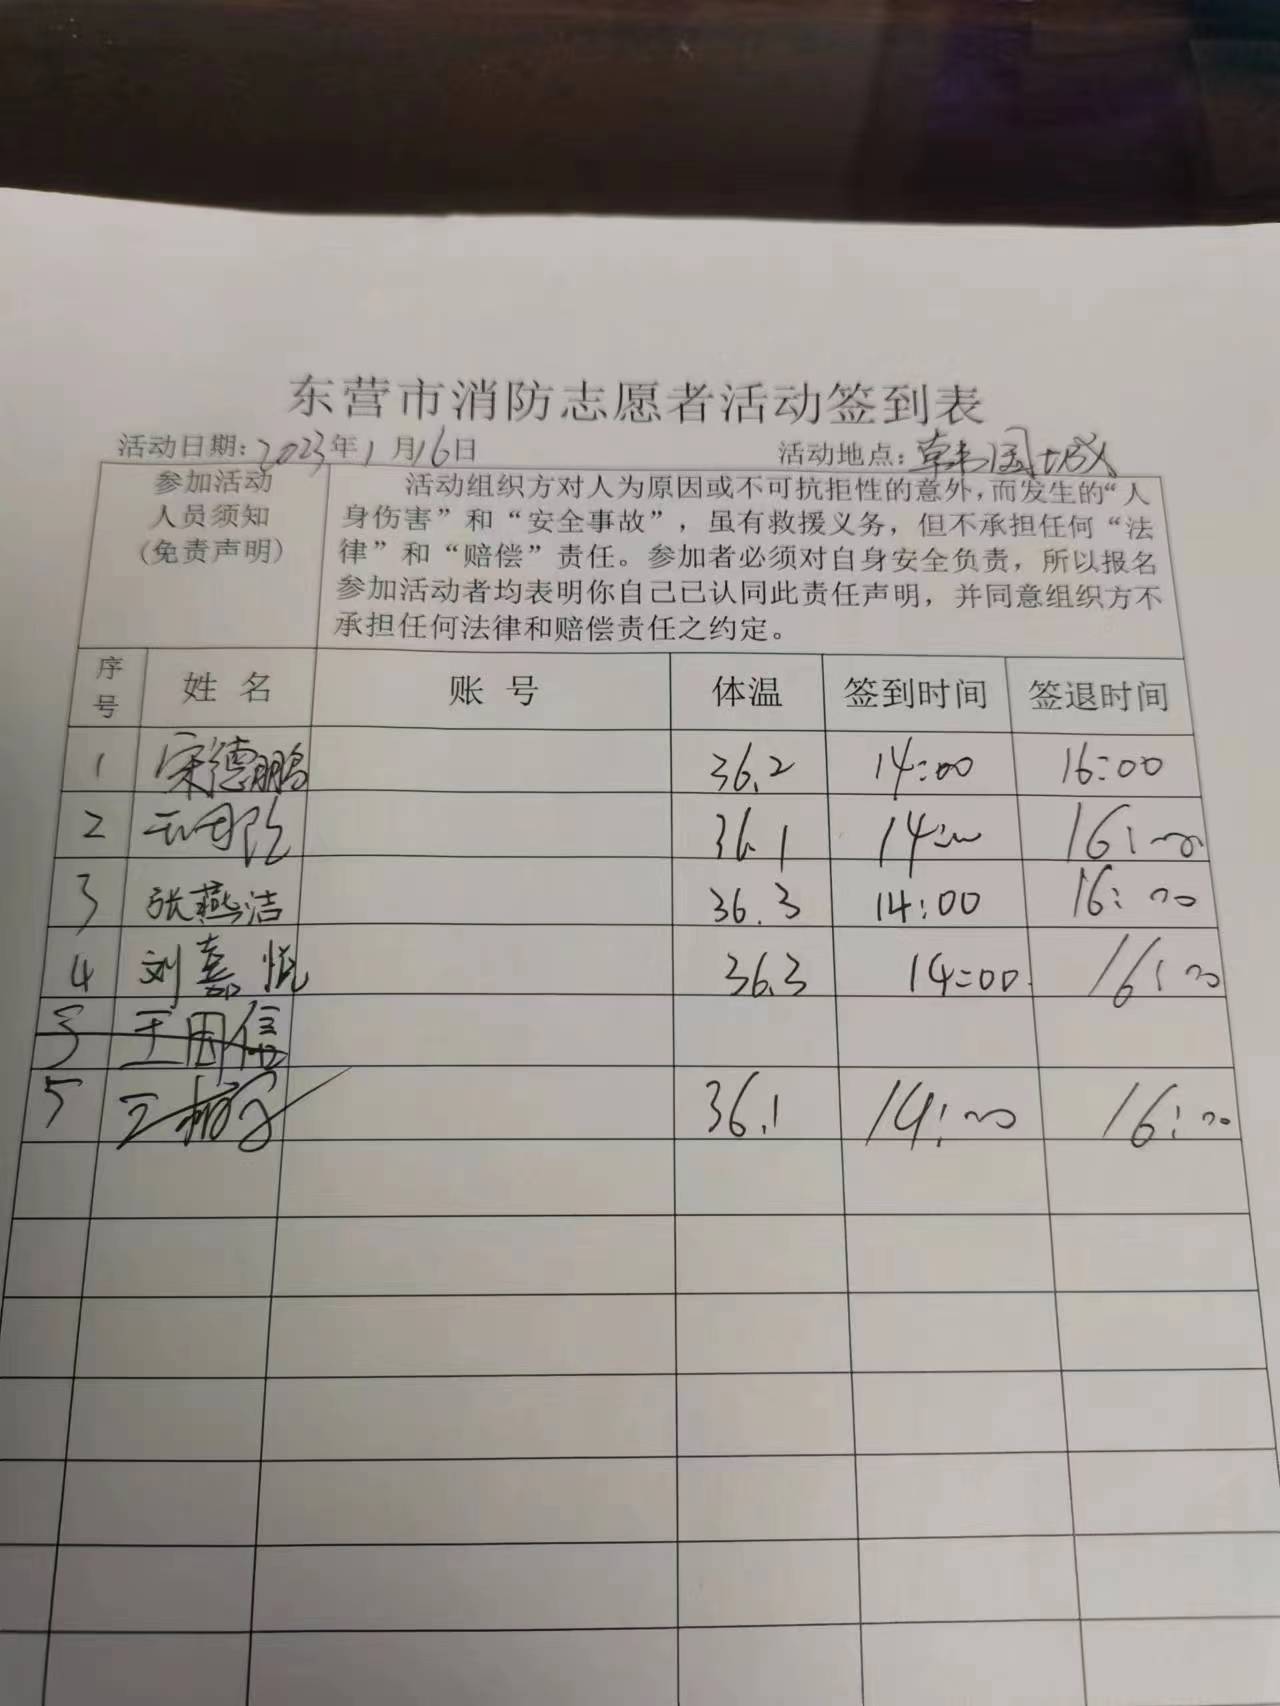 东营市消防志愿者活动签到表
活动日期:2023年1月16日 活动地点:
参加活动
人员须知
(免责声明)
活动组织方对人为原因或不可抗拒性的意外,而发生的“人
身伤害”和“安全事故”,虽有救援义务,但不承担任何“法
律”和“赔偿”责任。参加者必须对自身安全负责,所以报名
参加活动者均表明你自己已认同此责任声明,并同意组织方不
承担任何法律和赔偿责任之约定。
序号 姓名 账号 体温 签到时间 签退时间
1 宋德鹏 36.2 14:00 16:00
2 36.1 14:00 16:00
3 张燕洁 36.3 14:00 16:00
4 刘嘉 36.3 14:00 16:00
5 王国信
5 王 36.1 14:00 16:00